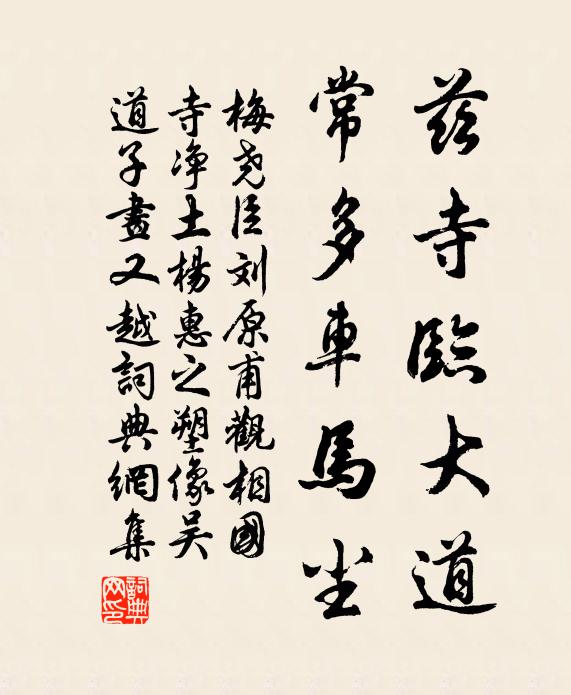 茲寺臨大道
常多車馬尘
梅尧臣刘原甫觀相國
寺净土楊惠之塑像吴
道子畫又越詞典網集
詞典网印